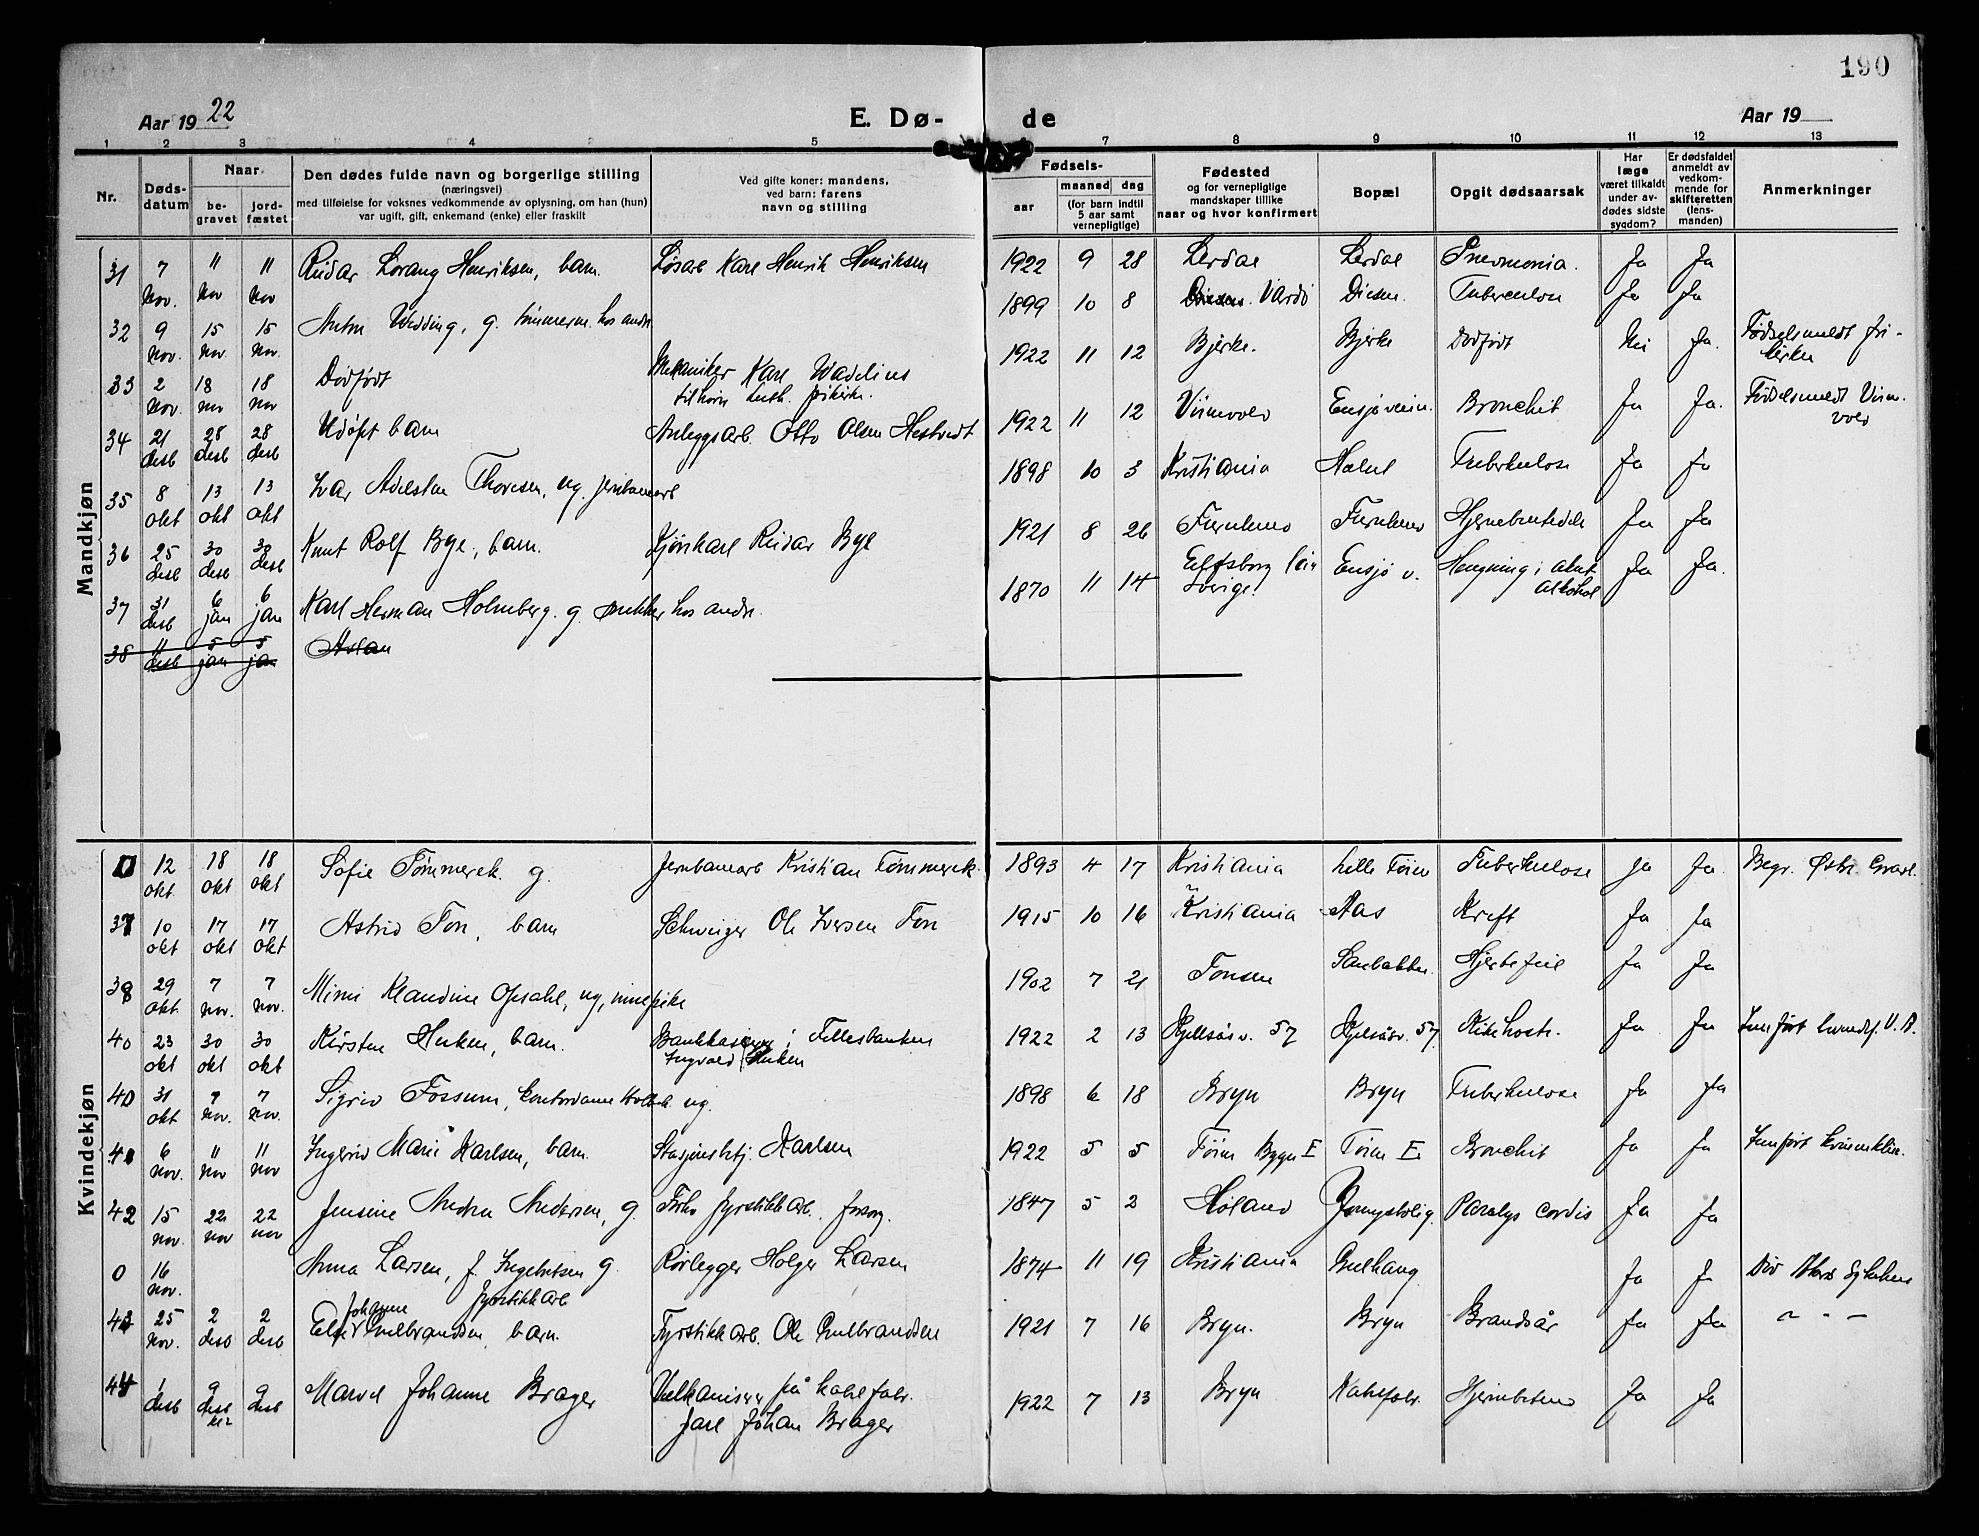 190
Aar 19 22
E. Dø-
de
Aar 19
1 2 3 4 5 7 8 9 10 11 12 13
Nr.
Døds-
datum
Naar
be-
gravet
jord-
fæstet
Den dødes fulde navn og borgerlige stilling
(næringsvei)
med tilføielse for voksnes vedkommende av oplysning, om han (hun)
var ugift, gift, enkemand (enke) eller fraskilt
Ved gifte koner: mandens,
ved barn: farens
navn og stilling
Fødsels-
aar
maaned
dag
(for barn indtil
5 aar samt
vernepligtige)
Fødested
og for vernepligtige
mandskaper tillike
naar og hvor konfirmert
Bopæl
Opgit dødsaarsak
Har
læge
været tilkaldt
under av-
dødes sidste
sygdom?
Er dødsfaldet
anmeldt av
vedkom-
mende for
skifteretten
(lens-
manden)
Anmerkninger
Mandkjøn
31 7 Nov. 11 Nov 11 Nov Reidar Lorang Henriksen, barn. Løsarb Karl Henrik Henriksen 1922 9 28 Lerdal Lerdal Pnevmonia. Ja Ja
32 9 Nov. 15 Nov. 15 Nov. Anton Wedding, g. tømmerm. hos andre 1899 10 8 Vardö Diesen. Tuberculose Ja Ja
33 2 Nov. 18 Nov 18 Nov Dødfødt Mekaniker Karl Wadelius 1922 11 12 Bjerke. Bjerke Dødfødt Nei Ja. Fødselsmeldt fri-
kirken
34 21 desb 28 desb 28 desb Udøpt barn Anleggsarb. Otto Olsen Hestvedt 1922 11 12 Ensjøveien. Bronchit Ja Ja. Fødselsmeldt
35 8 okt 13 okt 13 okt Ivar Adelsten Thoresen, ug. jernbanearb 1898 10 3 Kristiania Tuberkulose Ja Ja
36 25 desb 30 desb 30 desb Knut Rolf Bye, barn. Reidar Bye 1921 8 26 Furulund Furulund Ja Ja
37 31 desb 6 jan 6 jan Karl Herman Holmberg. g. snekker hos andre. 1870 11 14 Elfsborg län
Sverige. Ensjø v. Hengning i akut
alkohol Ja Ja.
38 11 desb 5 jan 5 jan
Kvindekjøn
0 12 okt 18 okt 18 okt Sofie Tømmerek. g. Jernbanearb Kristian Tømmerek. 1893 4 17 Kristiania Lille Tøien Tuberkulose Ja Ja. Begr. Østre Gravl.
10 okt 17 okt 17 okt Astrid Ton, barn Ole Iversen Ton 1915 10 16 Kristiania Aas Kreft Ja Ja
29 okt. 7 nov. 7 nov. Mimi Klaudine Opsahl, ug, 1902 7 21 Tonsen Hjertefeil Ja Ja
40 23 okt 30 okt 30 okt Kirsten Huken, barn. Bankkasserer i Fellesbanken
Ingvald Huken 1922 2 13 Kjelsåsv. 57 Kjelsåsv. 57 Kikhoste. Ja Ja
40 31 okt 7 nov. 7 nov. Sigrid Fossum, kontordame ug. 1898 6 18 Bryn Bryn Tuberkulose Ja Ja
41 6 nov. 11 nov 11 nov Ingrid Marie Karlsen, barn. Stasjonsbetj. Karlsen 1922 5 5 Tøien Bygn E Tøien E. Bronchit Ja Ja
42 15 nov. 22 nov 22 nov Jensine Andrea Andersen, g. 1847 5 2 Høland Paralys cordis Ja Ja
0 16 nov. Anna Larsen, f. Ingebretsen g. Rørlegger Holger Larsen 1874 11 19 Kristiania Gulhaug Ja J
fyrstikkarb
43 25 nov. 2 desb 2 desb Johanne Gulbrandsen, barn. Fyrstikkarb. Ole Gulbrandsen 1921 7 16 Bryn. Bryn Brandsår Ja Ja
44 1 desb 9 desb 9 desb Johanne Brager Vulkaniserer på kabelfabr.
Jarl Johan Brager 1922 7 13 Bryn Kabelfabr. Ja Ja